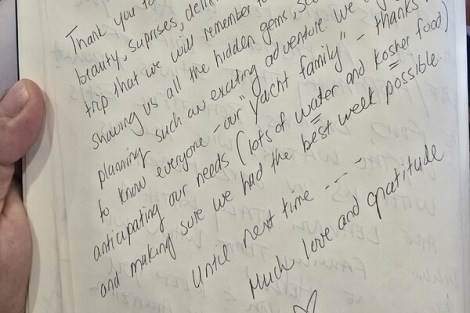 Thank you fo
beauty, suprises, deli
trip that we will remember
showing us all the hidden gems,
planning such an exciting adventure. We
to know everyone - our "yacht family" - thanks
anticipating our needs (lots of water and kosher food)
and making sure we had the best week possible.
Until next time ----
Much love and gratitude
♡